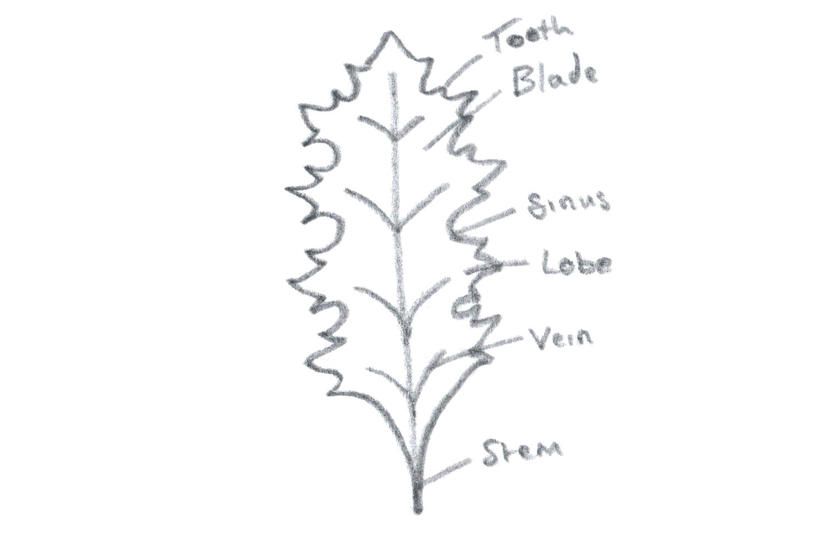 Tooth
Blade
Sinus
Lobe
Vein
Stem